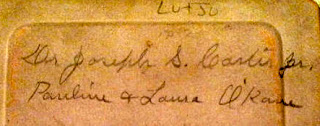 LU+50
Dr Joseph S. Carlis Jr,
Pauline & Laura O'Kane